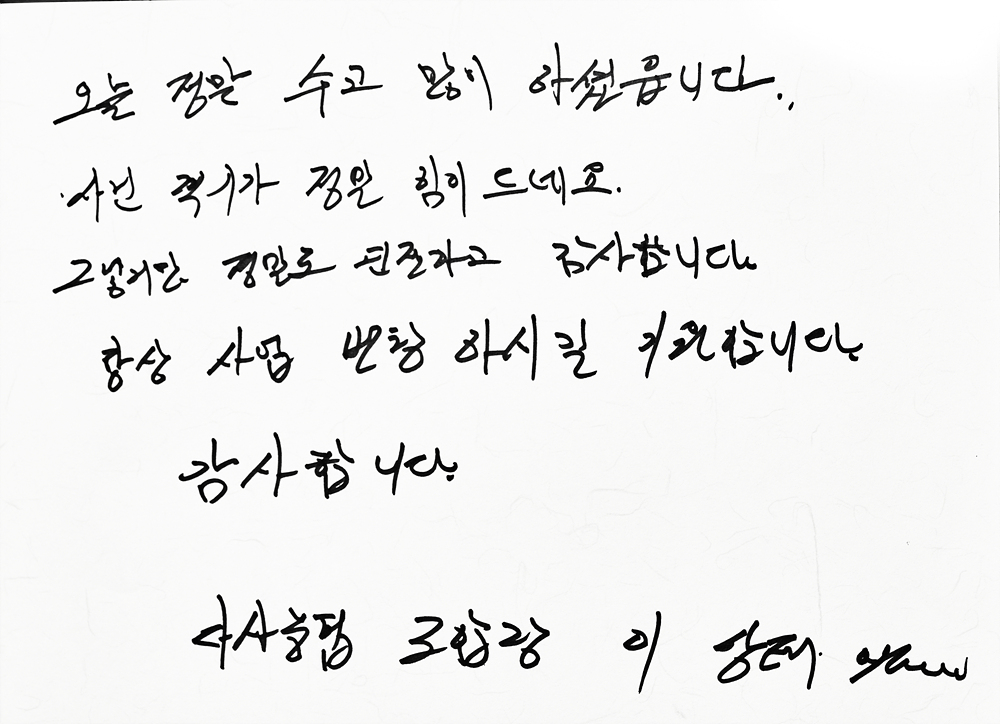 오늘 정말 수고 많이 하셨읍니다.
사진 찍기가 정말 힘이 드네요.
그렇지만 정말로 만족하고 감사합니다.
항상 사업 번창 하시길 기원합니다.
감사합니다.
다사농협 조합장 이 상태